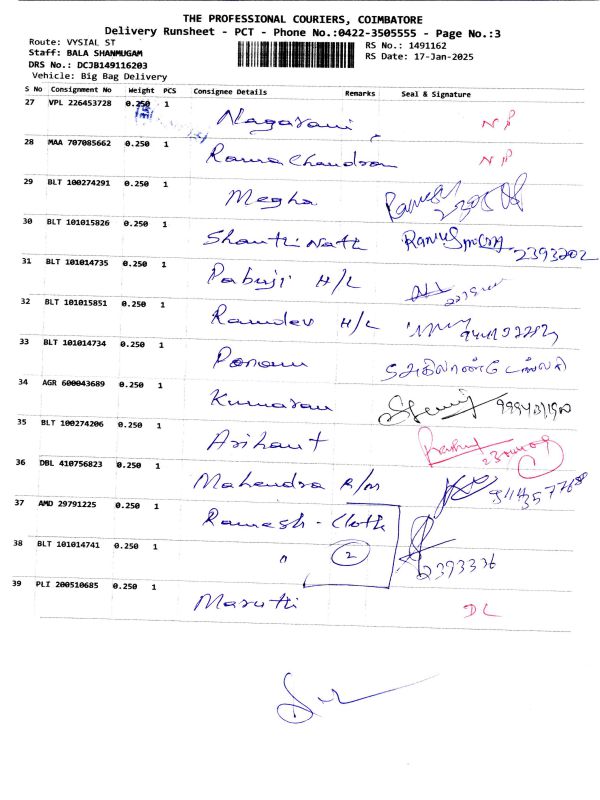 THE PROFESSIONAL COURIERS, COIMBATORE
Delivery Runsheet - PCT - Phone No.:0422-3505555 - Page No.:3
Route: VYSIAL ST
RS No.: 1491162
Staff: BALA SHANMUGAM
RS Date: 17-Jan-2025
DRS No.: DCJB149116203
Vehicle: Big Bag Delivery
S No Consignment No Weight PCS Consignee Details Remarks Seal & Signature
27 VPL 226453728 0.250 1 Nagarani NP
28 MAA 707085662 0.250 1 Rama Chandran NP
29 BLT 100274291 0.250 1 Megha
30 BLT 101015826 0.250 1 Shanti Nath 2393202
31 BLT 101014735 0.250 1 Pabuji H/L
32 BLT 101015851 0.250 1 Ramdev H/L
33 BLT 101014734 0.250 1 Ponam
34 AGR 600043689 0.250 1 Kumaran
35 BLT 100274206 0.250 1 Arihant
36 DBL 410756823 0.250 1 Mahendra R/M
37 AMD 29791225 0.250 1 Ramesh - Cloth
38 BLT 101014741 0.250 1 " 2 2393336
39 PLI 200510685 0.250 1 Maruthi DL